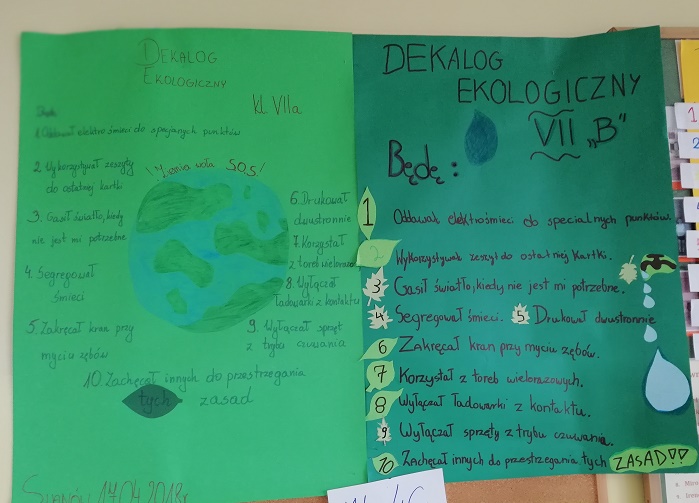 DEKALOG
EKOLOGICZNY
kl VIIa
1. Oddawał elektrośmieci do specjalnych punktów
! Ziemia woła SOS!
2. Wykorzystywał zeszyty
do ostatniej kartki
3. Gasił światło, kiedy
nie jest mi potrzebne
4. Segregował
śmieci
5. Zakręcał kran przy
myciu zębów
6. Drukował
dwustronnie
7. Korzystał
z toreb wielorazo
8. Wyłączał
ładowarki z kontaktu
9. Wyłączał sprzęt
z trybu czuwania
10. Zachęcał innych do przestrzegania
tych zasad
17.04.2018r
DEKALOG
EKOLOGICZNY
VII „B"
Będę:
1 Oddawał elektrośmieci do specialnych punktów.
2 Wykorzystywał zeszyt do ostatniej kartki.
3 Gasił światło, kiedy nie jest mi potrzebne.
4 Segregował śmieci. 5 Drukował dwustronnie
6 Zakręcał kran przy myciu zębów.
7 Korzystał z toreb wielorazowych.
8 Wyłączał ładowarki z kontaktu.
9 Wyłączał sprzęty z trybu czuwania.
10 Zachęcał innych do przestrzegania tych ZASAD!!